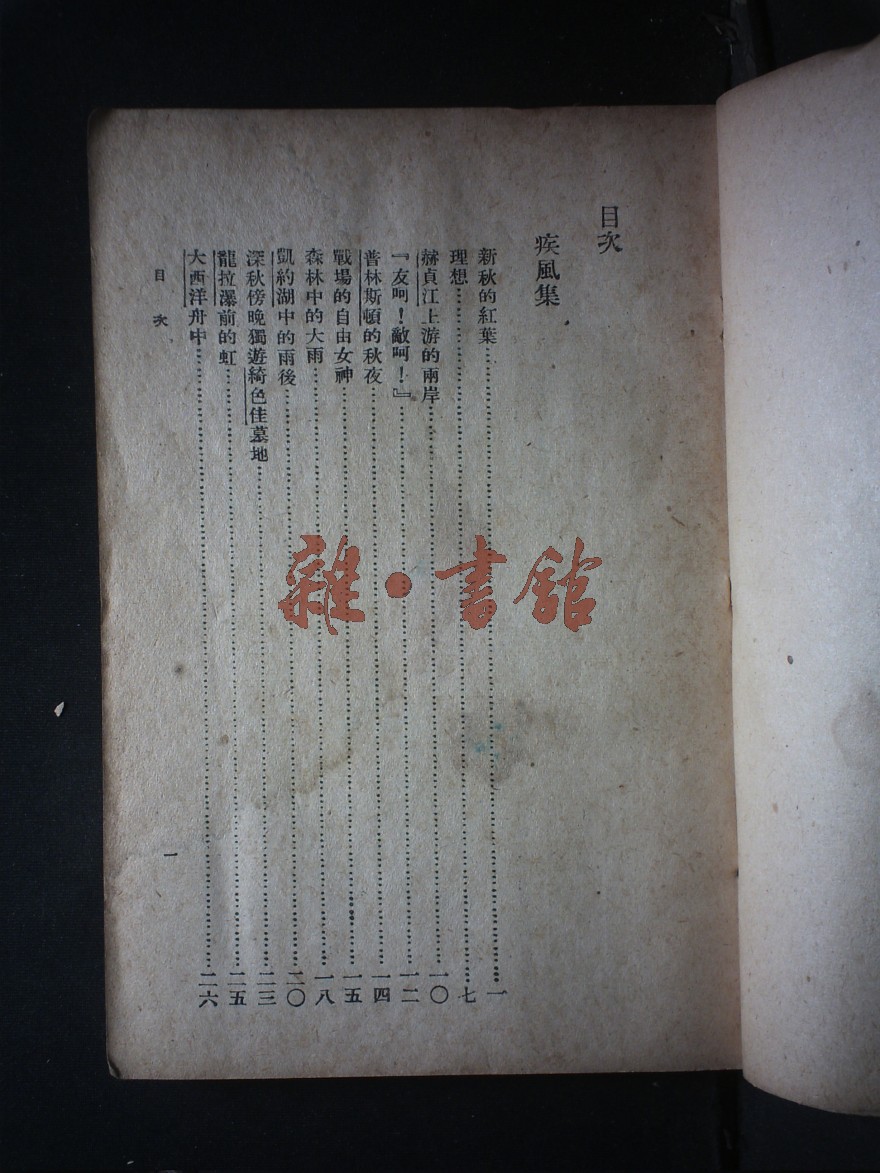 目次
疾風集
新秋的紅葉……一
理想……七
赫貞江上游的兩岸……一〇
『友呵！敵呵！』……一二
普林斯頓的秋夜……一四
戰場的自由女神……一五
森林中的大雨……一八
凱約湖中的雨後……二〇
深秋傍晚獨遊綺色佳墓地……二三
龍拉瀑前的虹……二五
大西洋舟中……二六
目次
一
雜·書館